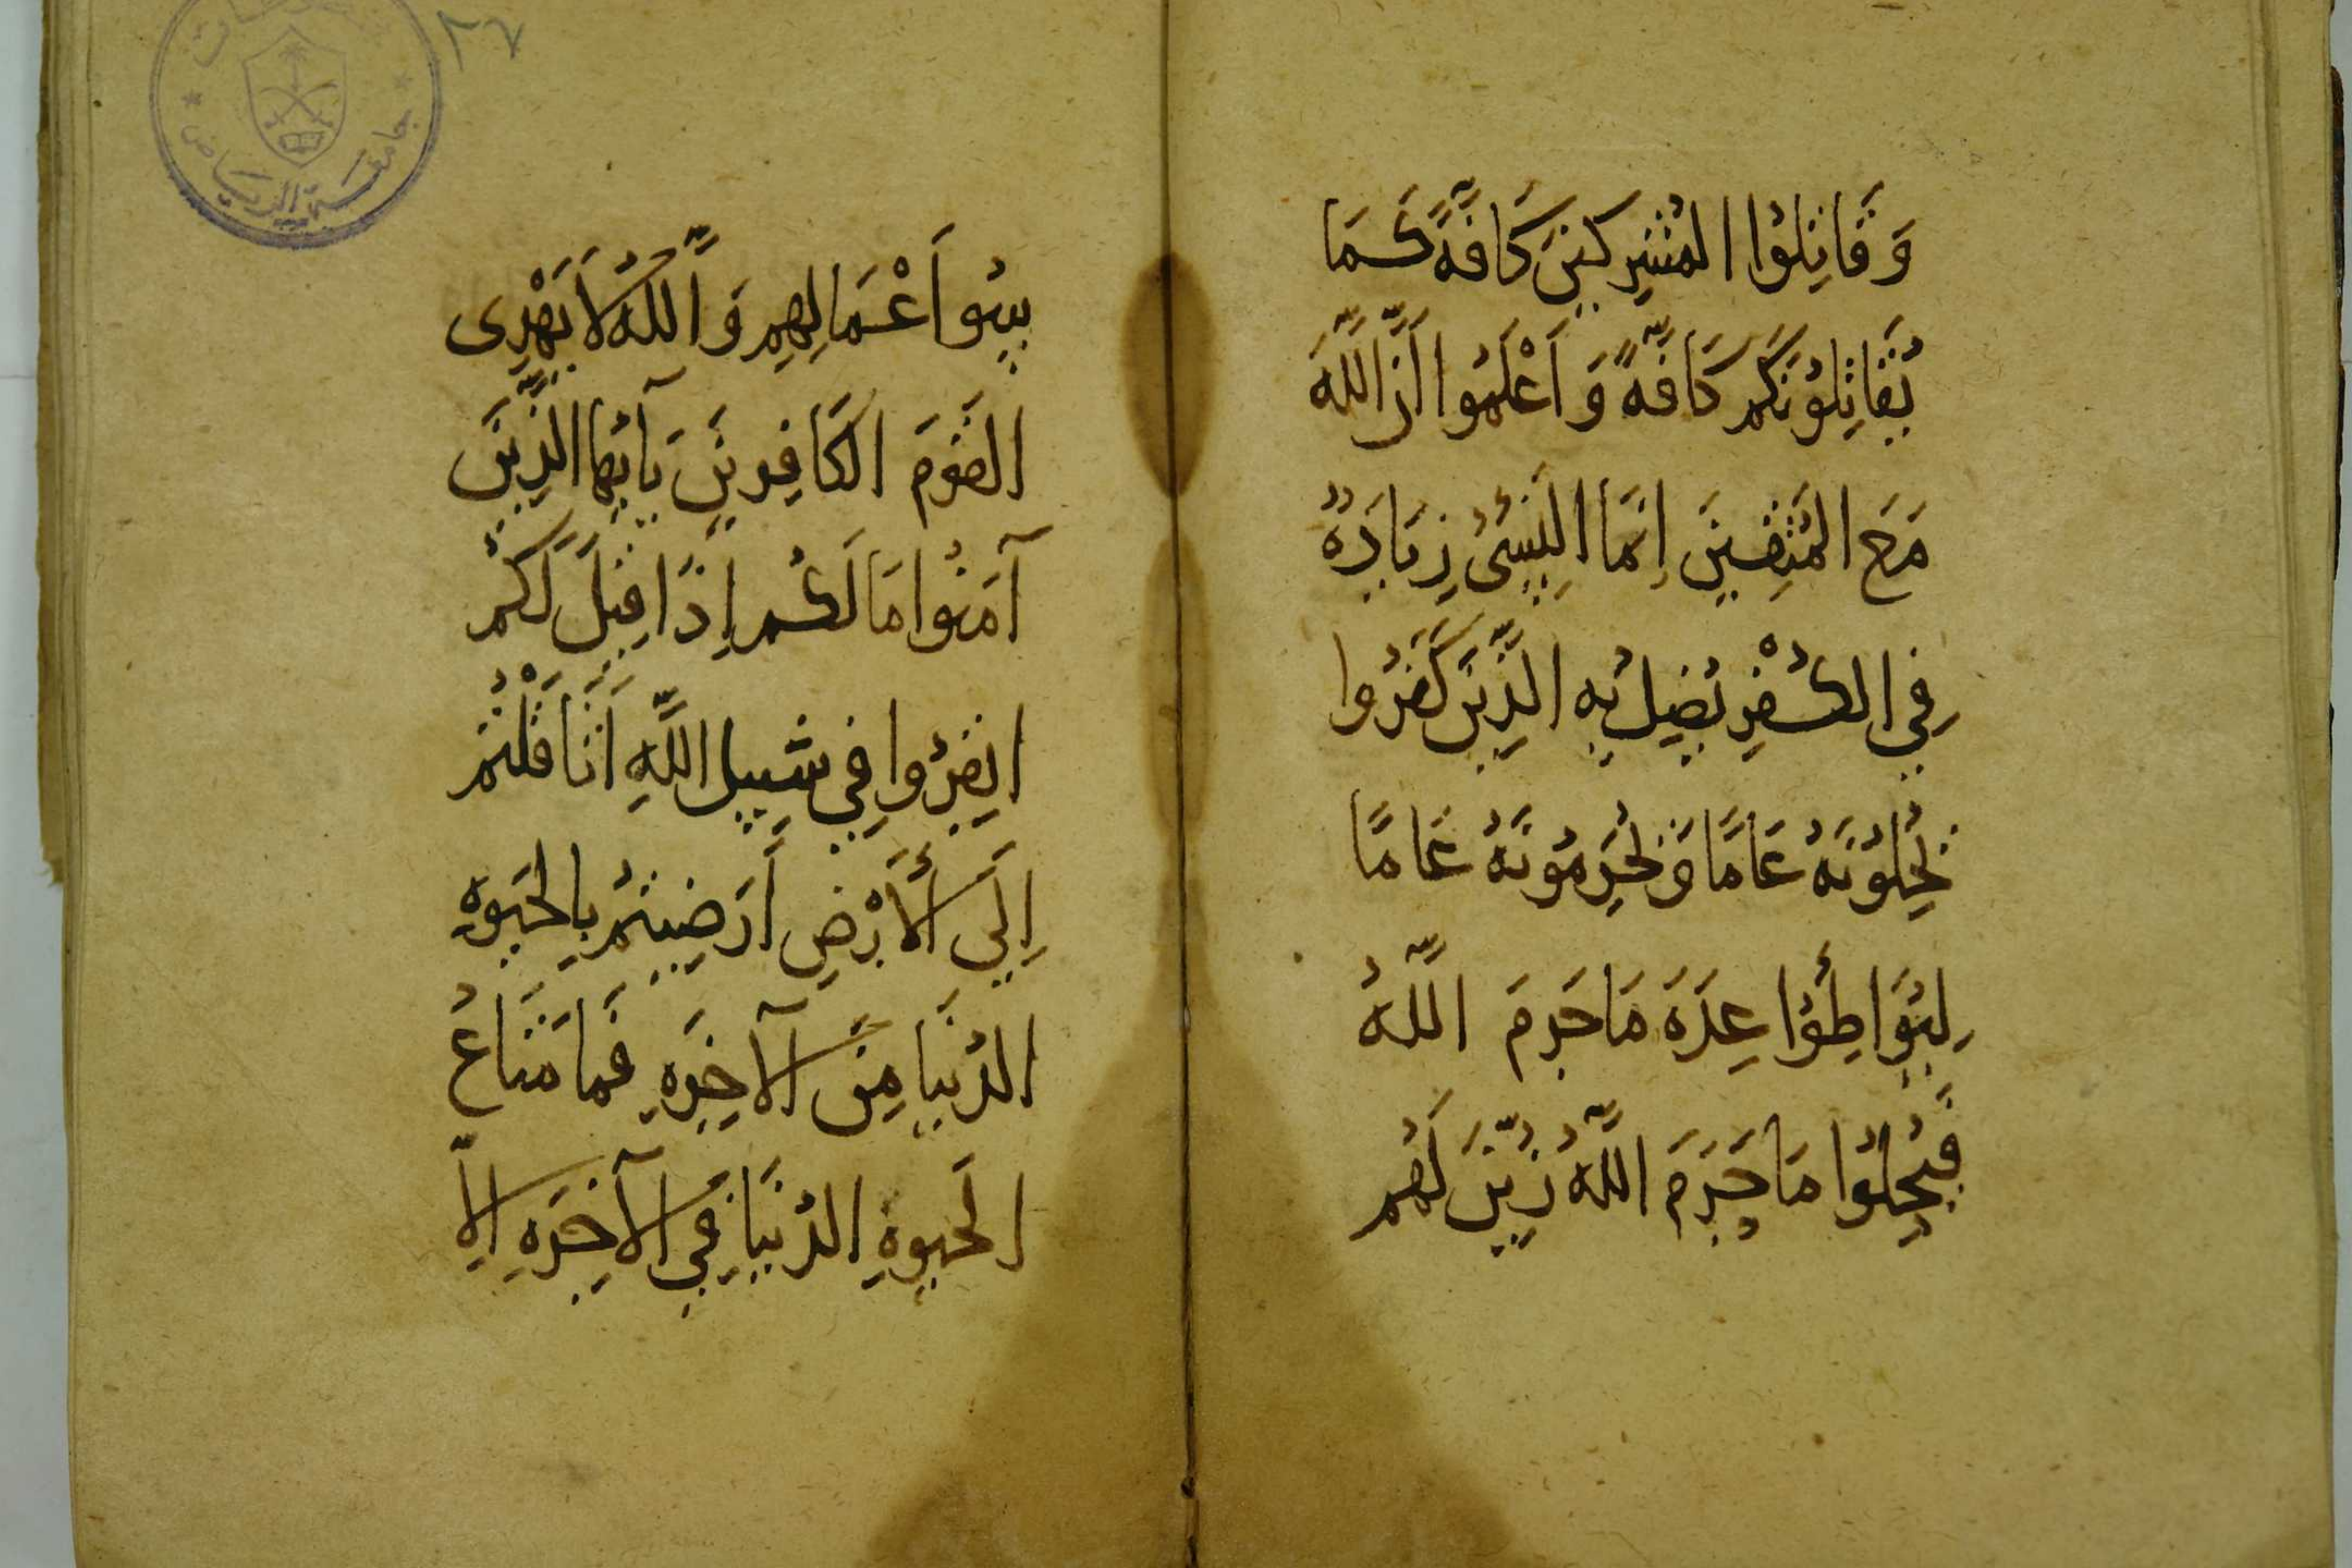 وَقَاتِلُوا المُشْرِكِينَ كَافَّةً كَمَا
يُقَاتِلُونَكُم كَافَّةً وَاَعْلَمُوا اَنَّ اللَّهَ
مَعَ المُتَّقِينَ اِنَّمَا النَّسِىُٔ زِيَادَةٌ
فِي الكُفْرِ يُضِلُ بِهِ الَّذِينَ كَفَرُوا
يُحِلُونَهُ عَامًا وَيُحَرِمُونَهُ عَامًا
لِيُوَاطِؤُا عِدَةَ مَا حَرمَ اللَّهُ
فَيُحِلُوا مَا حَرَمَ اللَّهُ زُيِّنَ لَهُم
٢٦
جامعة الرياض
سُؤُ اَعْمَالِهِم وَاللَّهُ لاَ يَهْدِى
القَوْمَ الكَافِرِينَ يَآ اَيُهَا الَّذِينَ
آمَنُوا مَا لَكُم اِذَا قِيلَ لَكُم
انفِرُوا فِي سَبِيلِ اللَّهِ اَثَّاقَلْتُم
اِلَي الأَرْضِ اَرَضِيتُم بِالحَيوةِ
الدُنْيَا مِنَ الآخِرَةِ فَمَا مَتَاعُ
الحَيوةِ الدُنْيَا فِي الآخِرَةِ الِاّ